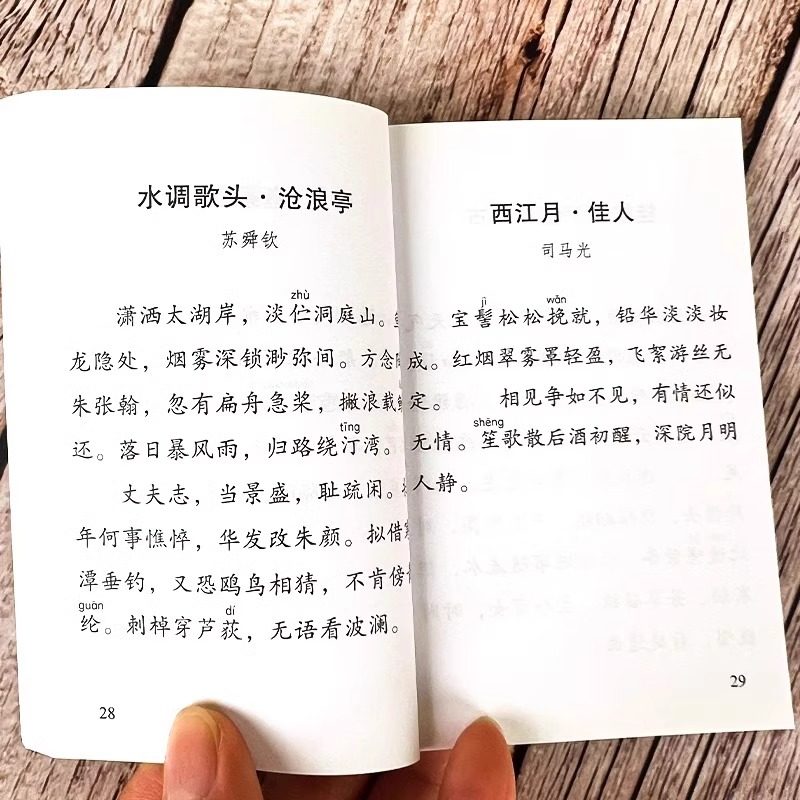 水调歌头·沧浪亭
苏舜钦
zhù
潇洒太湖岸，淡伫洞庭山。
龙隐处，烟雾深锁渺弥间。方念
朱张翰，忽有扁舟急桨，撇浪载
tīng
还。落日暴风雨，归路绕汀湾。
丈夫志，当景盛，耻疏闲。
年何事憔悴，华发改朱颜。拟借
潭垂钓，又恐鸥鸟相猜，不肯傍
guān dí
纶。刺棹穿芦荻，无语看波澜。
28
西江月·佳人
司马光
jì wǎn
宝髻松松挽就，铅华淡淡妆
成。红烟翠雾罩轻盈，飞絮游丝无
定。 相见争如不见，有情还似
shēng
无情。笙歌散后酒初醒，深院月明
人静。
29